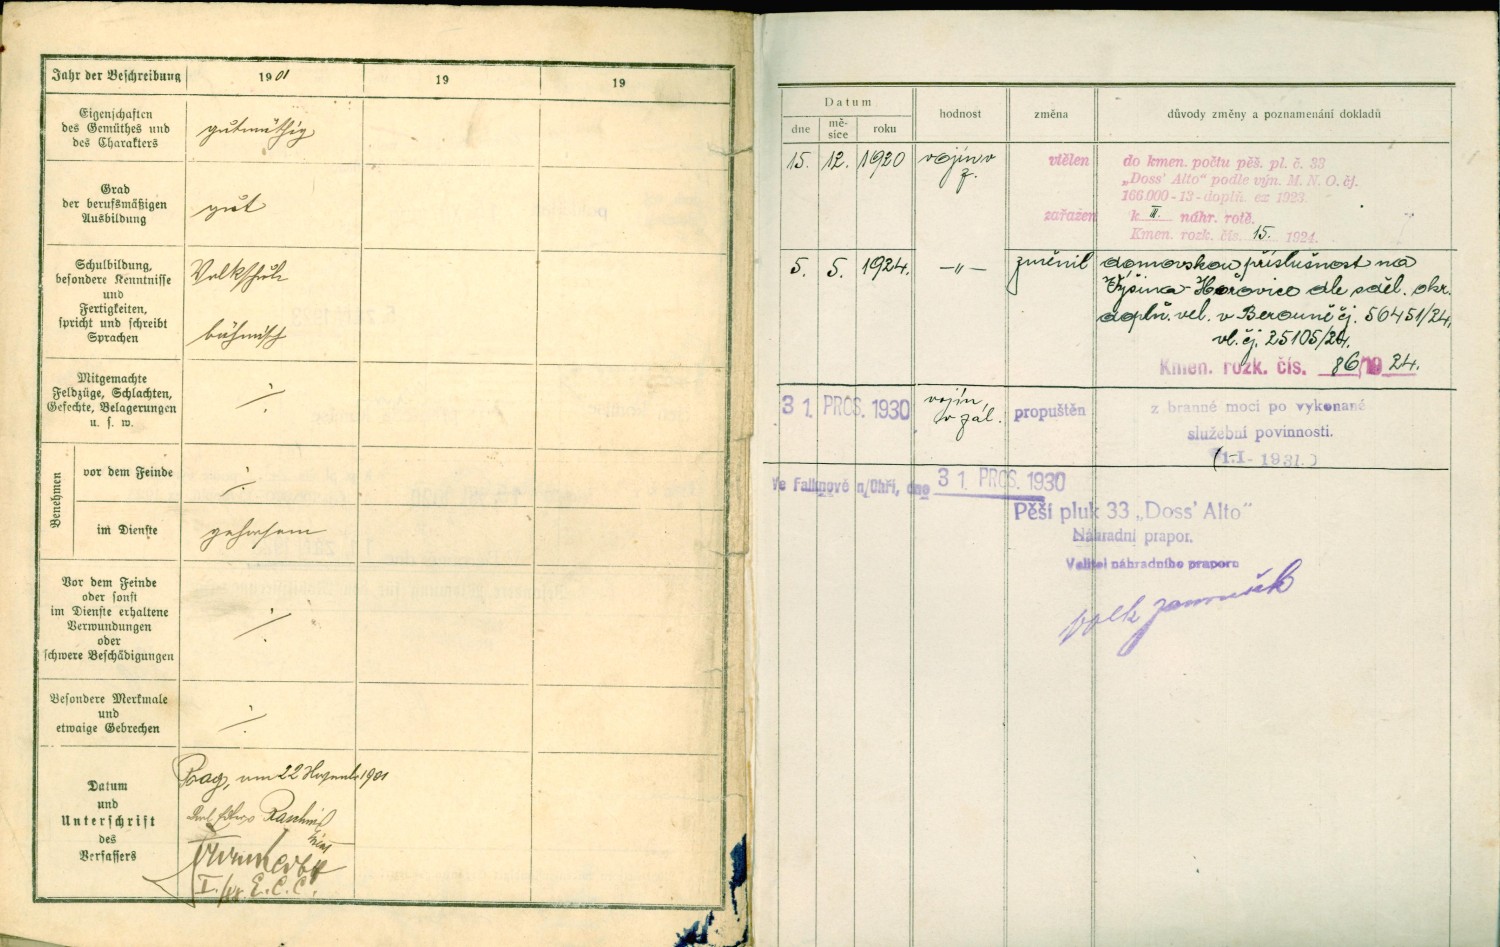 Jahr der Beschreibung
1901
19
19
Eigenschaften
des Gemüthes und
des Charakters
gutmüthig
Grad
der berufsmäßigen
Ausbildung
gut
Schulbildung,
besondere Kenntnisse
und
Fertigkeiten,
spricht und schreibt
Sprachen
Volksschule
böhmisch
Mitgemachte
Feldzüge, Schlachten,
Gefechte, Belagerungen
u. s. w.
./.
Benehmen
vor dem Feinde
./.
im Dienste
gehorsam
Vor dem Feinde
oder sonst
im Dienste erhaltene
Verwundungen
oder
schwere Beschädigungen
./.
Besondere Merkmale
und
etwaige Gebrechen
./.
Datum
und
Unterschrift
des
Verfassers
Prag, am 22 1901
Datum
dne
mě-
síce
roku
hodnost
změna
důvody změny a poznamenání dokladů
15. 12. 1920
vojín v
z.
vtělen
do kmen. počtu pěš. pl. č. 33
„Doss' Alto" podle výn. M. N. O. čj.
166.000-13-doplň. ez 1923.
zařazen
k III. náhr. rotě.
Kmen. rozk. čís. 15. 1924.
5. 5. 1924.
—„—
změnil
domovskou příslušnost na
Hořovice dle sděl. okr.
doplň. vel. v Berouně čj. 56451/24,
vl. čj. 25105/24.
Kmen. rozk. čís. 86/1924.
31. PROS. 1930
vojín
v zál.
propuštěn
z branné moci po vykonané
služební povinnosti.
(1.I- 1931.)
Ve Falknově n/Ohří, dne 31. PROS. 1930
Pěší pluk 33 „Doss' Alto"
Náhradní prapor.
Velitel náhradního praporu